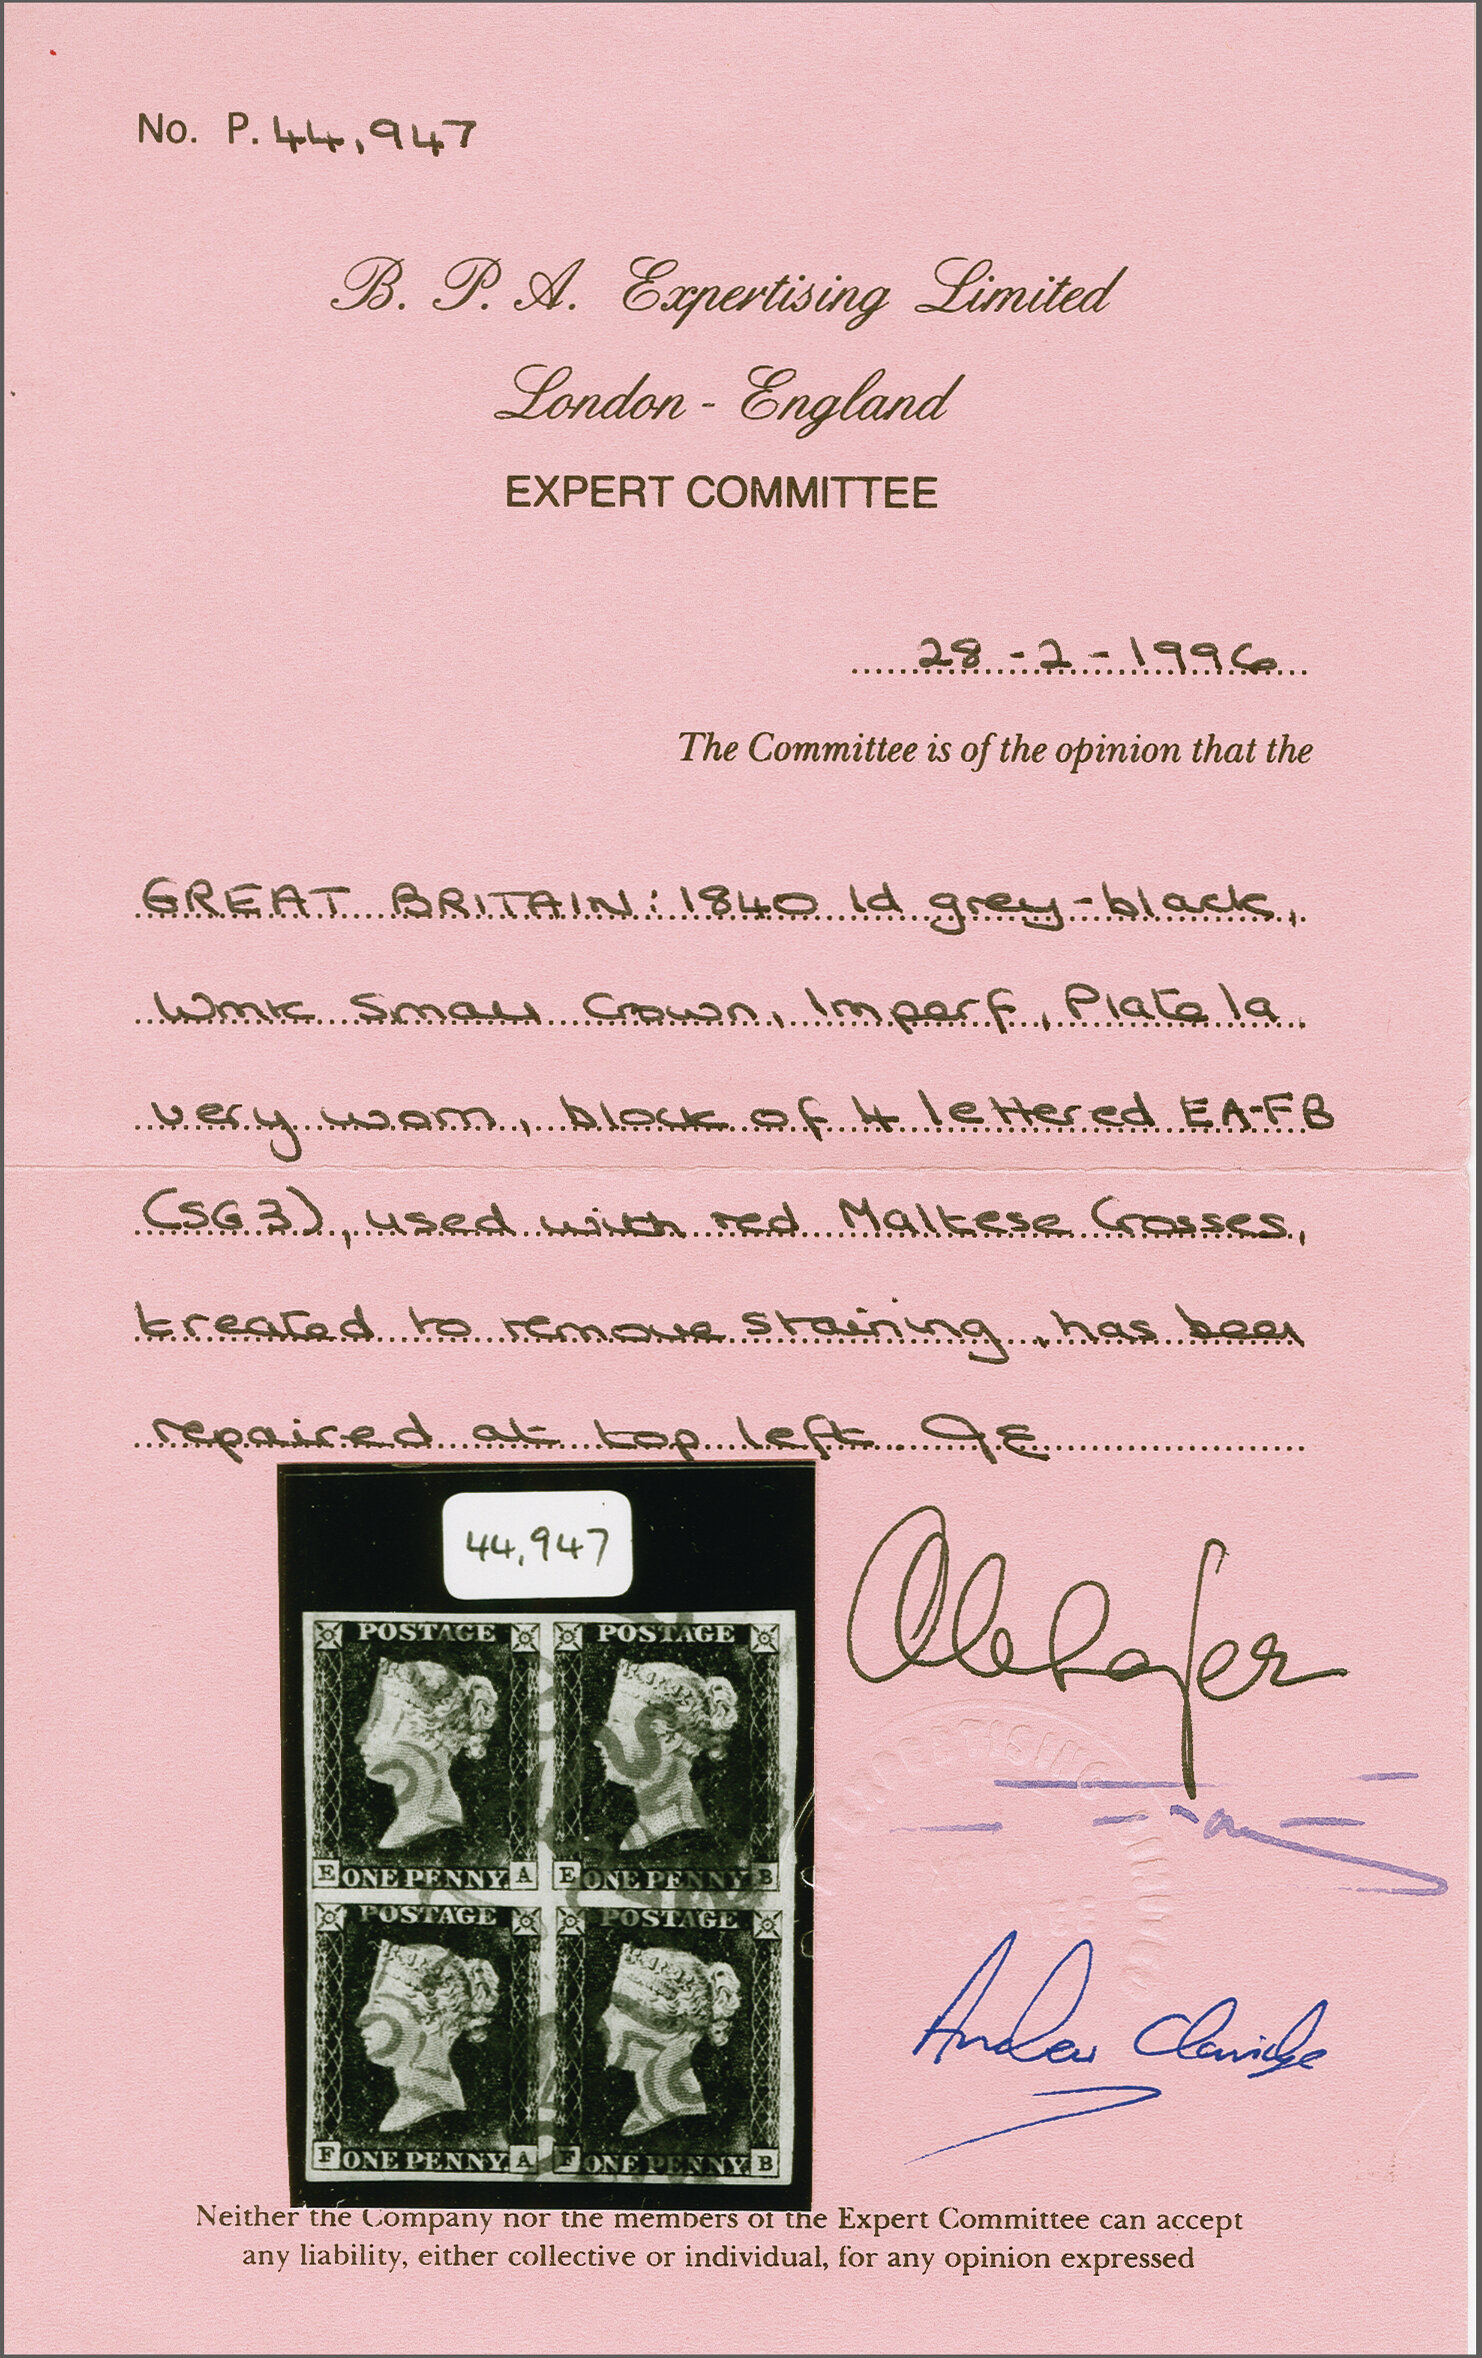 No. P. 44,947
B. P. A. Expertising Limited
London - England
EXPERT COMMITTEE
28-2-1996
The Committee is of the opinion that the
GREAT BRITAIN: 1840 1d grey-black,
Wmk Small Crown, Imperf, Plate 1a
very worn, block of 4 lettered EA-FB
(SG3), used with red Maltese Crosses,
treated to remove staining, has been
repaired at top left.
44,947
POSTAGE POSTAGE
E ONE PENNY. A E ONE PENNY. B
POSTAGE POSTAGE
F ONE PENNY. A F ONE PENNY. B
EXPERTISING
Andrew Claridge
Neither the Company nor the members of the Expert Committee can accept
any liability, either collective or individual, for any opinion expressed